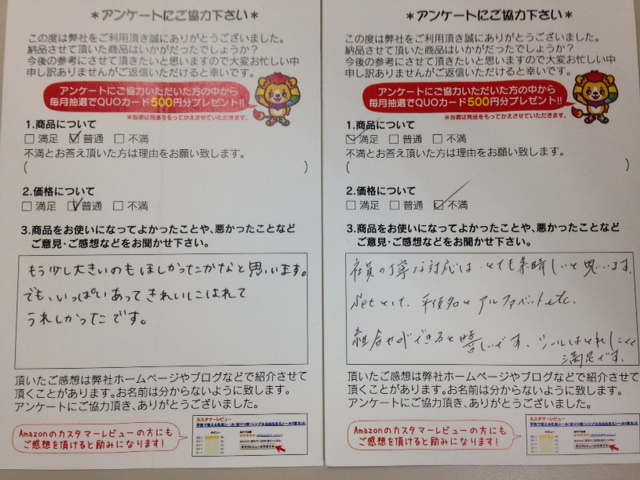 ＊アンケートにご協力下さい＊
この度は弊社をご利用頂き誠にありがとうございました。
納品させて頂いた商品はいかがだったでしょうか？
今後の参考にさせて頂きたいと思いますので大変お忙しい中
申し訳ありませんがご返信いただけると幸いです。
アンケートにご協力いただいた方の中から
毎月抽選でQUOカード500円分プレゼント!!
※当選は発送をもってかえさせていただきます。
1.商品について
□満足 ☑普通 □不満
不満とお答え頂いた方は理由をお願い致します。
( )
2.価格について
□満足 ☑普通 □不満
3.商品をお使いになってよかったことや、悪かったことなど
ご意見・ご感想などをお聞かせ下さい。
もう少し大きいのもほしかったかなと思います。
でも、いっぱいあってきれいにはれて
うれしかったです。
頂いたご感想は弊社ホームページやブログなどで紹介させて
頂くことがあります。お名前は分からないように致します。
アンケートにご協力頂き、ありがとうございました。
Amazonのカスタマーレビューの方にも
ご感想を頂けると励みになります！
カスタマーレビュー
＊アンケートにご協力下さい＊
この度は弊社をご利用頂き誠にありがとうございました。
納品させて頂いた商品はいかがだったでしょうか？
今後の参考にさせて頂きたいと思いますので大変お忙しい中
申し訳ありませんがご返信いただけると幸いです。
アンケートにご協力いただいた方の中から
毎月抽選でQUOカード500円分プレゼント!!
※当選は発送をもってかえさせていただきます。
1.商品について
☑満足 □普通 □不満
不満とお答え頂いた方は理由をお願い致します。
( )
2.価格について
□満足 □普通 ☑不満
3.商品をお使いになってよかったことや、悪かったことなど
ご意見・ご感想などをお聞かせ下さい。
社員の丁寧な対応は、とても素晴しいと思います。
Setとして、平仮名とアルファベットetc.
組合せができると嬉しいです。シールはとれにくくて
満足です。
頂いたご感想は弊社ホームページやブログなどで紹介させて
頂くことがあります。お名前は分からないように致します。
アンケートにご協力頂き、ありがとうございました。
Amazonのカスタマーレビューの方にも
ご感想を頂けると励みになります！
カスタマーレビュー